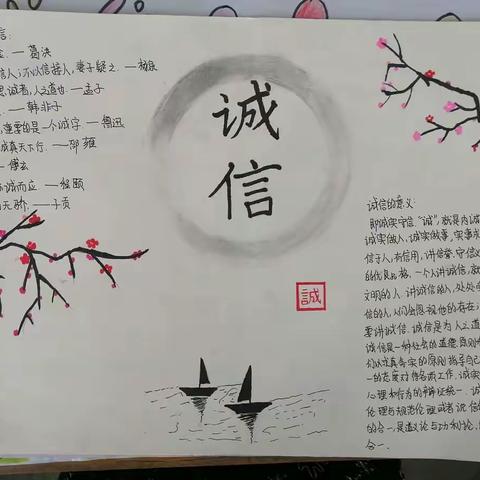 言:
金. — 葛洪
信人;不以信接人,妻子疑之. — 杨泉
思诚者,人之道也. — 孟子
. — 韩非子
重要的是一个诚字 — 鲁迅
诚真天下行. — 邵雍
— 傅玄
诚而应. — 程颐
. — 子贡
诚
信
誠
诚信的意义:
即诚实守信."诚",就是内诚
诚实做人,诚实做事,实事求
信于人,有信用,讲信誉,守信义
的优良品格,一个人讲诚信,就
文明的人.讲诚信的人,处处
信的人,人们会忽视他的存在;
要讲诚信.诚信是为人之道
诚信是一种社会的道德原则
们以求真务实的原则指导自己
一的态度对待各项工作.诚实
心理和行为的辩证统一.诚
伦理与规范伦理或者说信
的合一,是道义论与功利论,
合一.